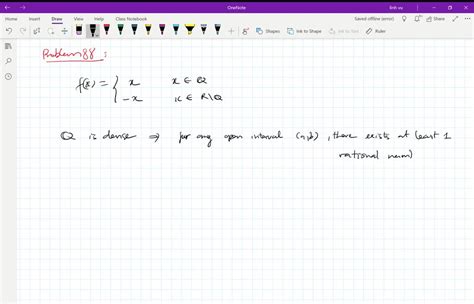 OneNote
linh vu
File Home Insert Draw View Help Class Notebook
Saved offline (error) Share
Shapes Ink to Shape Ink to Text
Problem 88 :
f(x) = { x x ∈ Q
-x x ∈ R\Q
Q is dense ⇒ for any open interval (a,b), there exists at least 1
rational num)